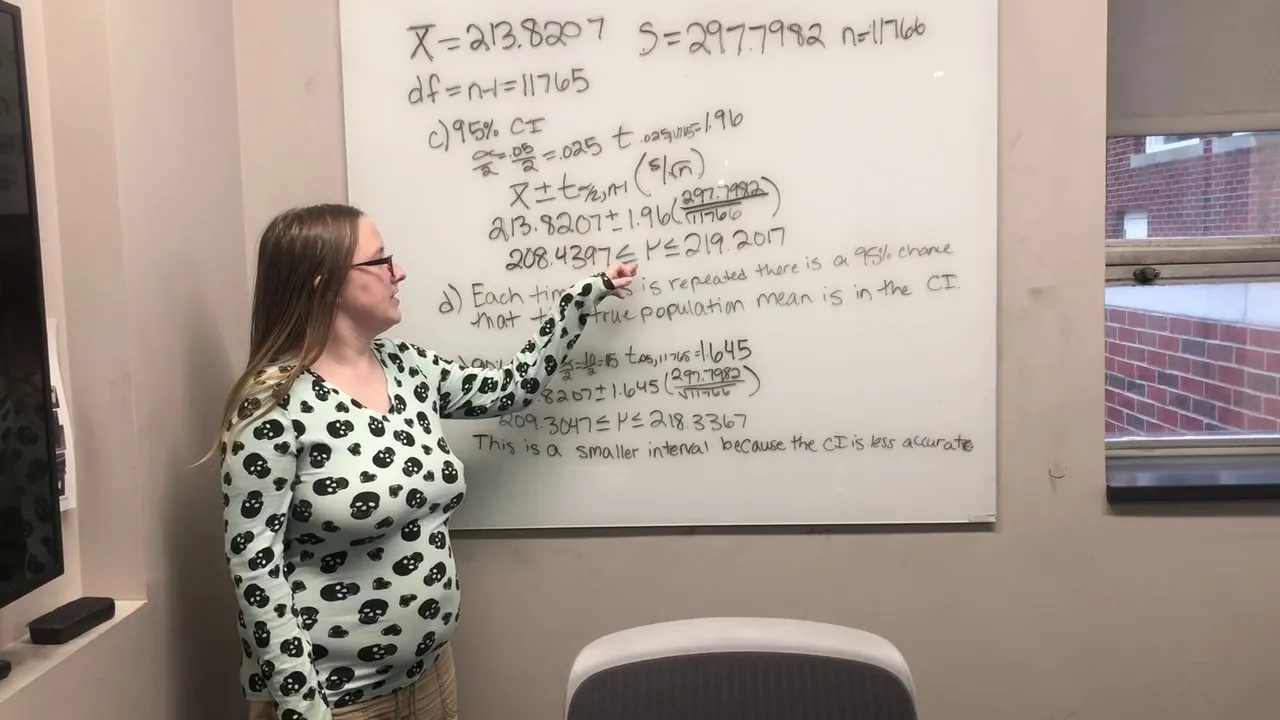 X̄ = 213.8207 S = 297.7982 n = 11766
df = n-1 = 11765
c) 95% CI
α/2 = .05/2 = .025 t .025,11765 = 1.96
X̄ ± t α/2, n-1 (s/√n)
213.8207 ± 1.96 (297.7982/√11766)
208.4397 ≤ μ ≤ 219.2017
d) Each is repeated there is a 95% chance
that true population mean is in the CI.
α/2 = .10/2 = t .05, 11765 = 1.645
8207 ± 1.645 (297.7982/√11766)
209.3047 ≤ μ ≤ 218.3367
This is a smaller interval because the CI is less accurate